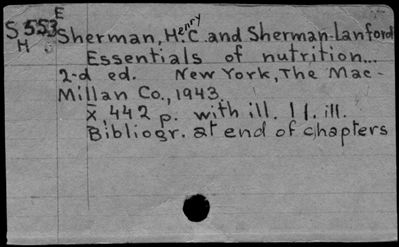 E
S 553 Sherman, Henry C. and Sherman-Lanford
H
Essentials of nutrition...
2-d ed. New York, The Mac-
Millan Co., 1943.
X, 442 p. with ill. 1 l. ill.
Bibliogr. at end of chapters